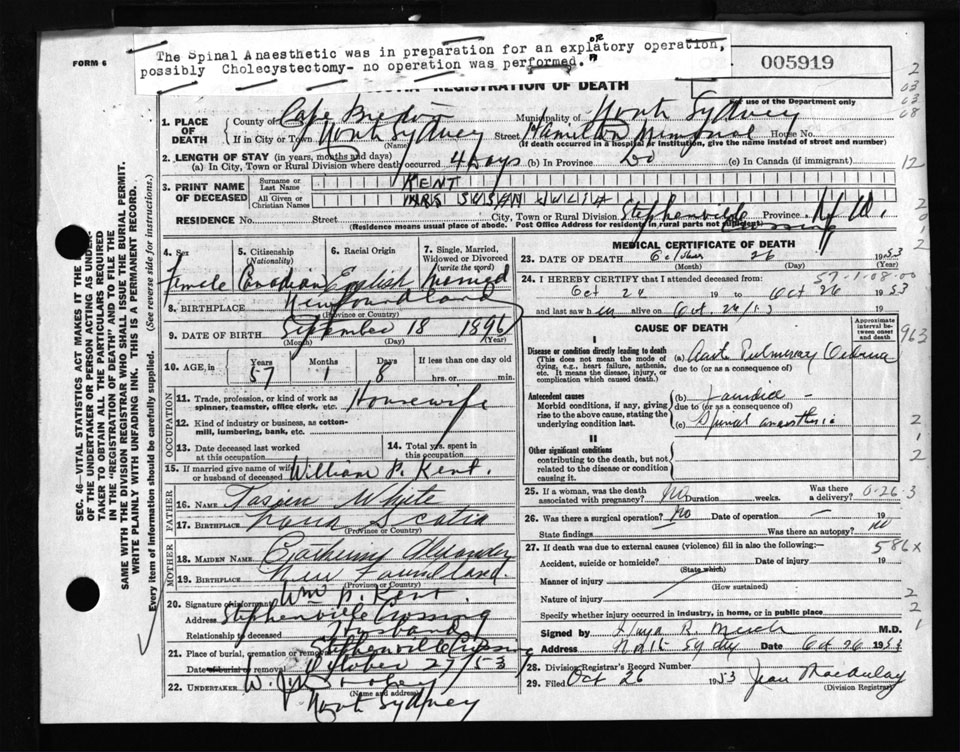 The Spinal Anaesthetic was in preparation for an explatory operation,
or
possibly Cholecystectomy- no operation was performed."
FORM 6
005919
REGISTRATION OF DEATH
For use of the Department only
1. PLACE OF DEATH
County of Cape Breton Municipality of North Sydney
If in City or Town North Sydney Street Hamilton Memorial House No.
(Name) (If death occurred in a hospital or institution, give the name instead of street and number)
2. LENGTH OF STAY (in years, months and days)
(a) In City, Town or Rural Division where death occurred 4 Days (b) In Province Do (c) In Canada (if immigrant)
3. PRINT NAME OF DECEASED
Surname or Last Name KENT
All Given or Christian Names MRS SUSAN
RESIDENCE No. Street City, Town or Rural Division Stephenville Crossing Province Nfld.
(Residence means usual place of abode. Post Office Address for residents in rural parts not sufficient)
4. Sex Female
5. Citizenship (Nationality) Canadian
6. Racial Origin English
7. Single, Married, Widowed or Divorced (write the word) Married
8. BIRTHPLACE Newfoundland
(Province or Country)
9. DATE OF BIRTH September 18 1896
(Month) (Day) (Year)
10. AGE, in Years Months Days If less than one day old
57 1 8 hrs. or min.
OCCUPATION
11. Trade, profession, or kind of work as spinner, teamster, office clerk, etc. Housewife
12. Kind of industry or business, as cotton-mill, lumbering, bank, etc.
13. Date deceased last worked at this occupation
14. Total yrs. spent in this occupation
15. If married give name of wife or husband of deceased William P. Kent.
FATHER
16. NAME White
17. BIRTHPLACE Nova Scotia
(Province or Country)
MOTHER
18. MAIDEN NAME Catherine Alexander
19. BIRTHPLACE New Foundland.
(Province or Country)
20. Signature of informant Wm P. Kent.
Address Stephenville Crossing
Relationship to deceased Husband
21. Place of burial, cremation or removal Stephenville Crossing
Date of burial or removal October 27/53
22. UNDERTAKER W. J.
(Name and address)
North Sydney
MEDICAL CERTIFICATE OF DEATH
23. DATE OF DEATH October 26 1953
(Month) (Day) (Year)
24. I HEREBY CERTIFY that I attended deceased from:
57-1-08-00
Oct 24 19 to Oct 26 1953
and last saw h er alive on Oct. 26/53 19
CAUSE OF DEATH
Approximate interval between onset and death
I
Disease or condition directly leading to death
(This does not mean the mode of dying, e.g., heart failure, asthenia, etc. It means the disease, injury, or complication which caused death.)
(a) Acute Pulmonary Oedema
due to (or as a consequence of)
Antecedent causes
Morbid conditions, if any, giving rise to the above cause, stating the underlying condition last.
(b) Jaundice -
due to (or as a consequence of)
(c) Spinal anaesthesia
II
Other significant conditions
contributing to the death, but not related to the disease or condition causing it.
25. If a woman, was the death associated with pregnancy? No Duration weeks. Was there a delivery?
0-26-3
26. Was there a surgical operation? No Date of operation - 19
State findings Was there an autopsy? No
27. If death was due to external causes (violence) fill in also the following:—
586x
Accident, suicide or homicide? Date of injury 19
(State which)
Manner of injury
(How sustained)
Nature of injury
Specify whether injury occurred in industry, in home, or in public place
Signed by M.D.
Address North Sydney Date Oct 26 1953
28. Division Registrar's Record Number
29. Filed Oct 26 1953 Jean MacAulay
(Division Registrar)
SEC. 46—VITAL STATISTICS ACT MAKES IT THE
OF THE UNDERTAKER OR PERSON ACTING AS UNDER-
TAKER TO OBTAIN ALL THE PARTICULARS REQUIRED
IN THE "REGISTRATION OF DEATH" AND TO FILE THE
SAME WITH THE DIVISION REGISTRAR WHO SHALL ISSUE THE BURIAL PERMIT.
WRITE PLAINLY WITH UNFADING INK. THIS IS A PERMANENT RECORD.
Every item of information should be carefully supplied. (See reverse side for instructions.)